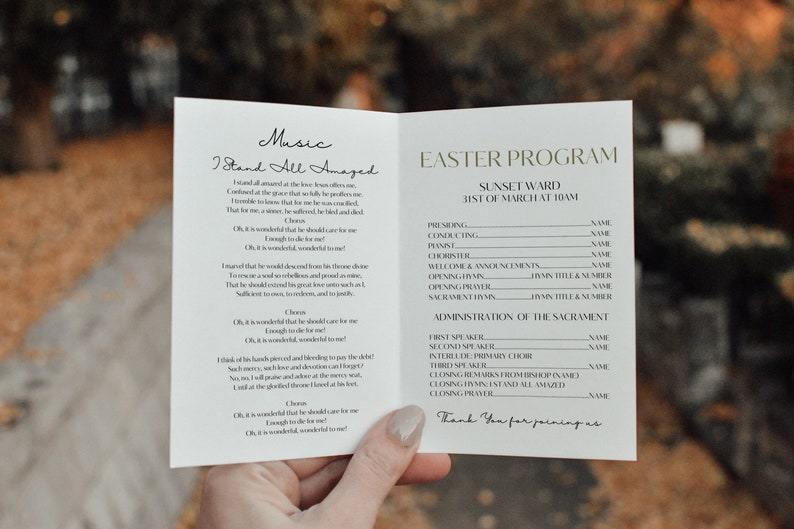 Music
I Stand All Amazed
I stand all amazed at the love Jesus offers me,
Confused at the grace that so fully he proffers me.
I tremble to know that for me he was crucified,
That for me, a sinner, he suffered, he bled and died.
Chorus
Oh, it is wonderful that he should care for me
Enough to die for me!
Oh, it is wonderful, wonderful to me!
I marvel that he would descend from his throne divine
To rescue a soul so rebellious and proud as mine,
That he should extend his great love unto such as I,
Sufficient to own, to redeem, and to justify.
Chorus
Oh, it is wonderful that he should care for me
Enough to die for me!
Oh, it is wonderful, wonderful to me!
I think of his hands pierced and bleeding to pay the debt!
Such mercy, such love and devotion can I forget?
No, no, I will praise and adore at the mercy seat,
Until at the glorified throne I kneel at his feet.
Chorus
Oh, it is wonderful that he should care for me
Enough to die for me!
Oh, it is wonderful, wonderful to me!
EASTER PROGRAM
SUNSET WARD
31ST OF MARCH AT 10AM
PRESIDING NAME
CONDUCTING NAME
PIANIST NAME
CHORISTER NAME
WELCOME & ANNOUNCEMENTS NAME
OPENING HYMN HYMN TITLE & NUMBER
OPENING PRAYER NAME
SACRAMENT HYMN HYMN TITLE & NUMBER
ADMINISTRATION OF THE SACRAMENT
FIRST SPEAKER NAME
SECOND SPEAKER NAME
INTERLUDE: PRIMARY CHOIR
THIRD SPEAKER NAME
CLOSING REMARKS FROM BISHOP (NAME)
CLOSING HYMN: I STAND ALL AMAZED
CLOSING PRAYER NAME
Thank You for joining us